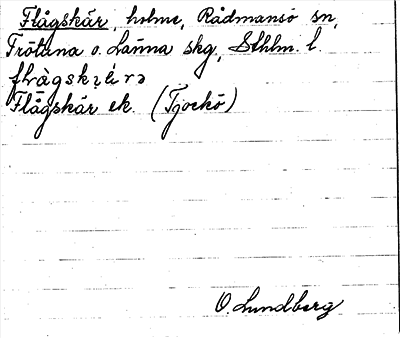 Flågskär, holme, Rådmansö sn,
Frötuna o. Länna skg, Sthlm. l
Flågskär ek. (Tjockö)
O. Lundberg